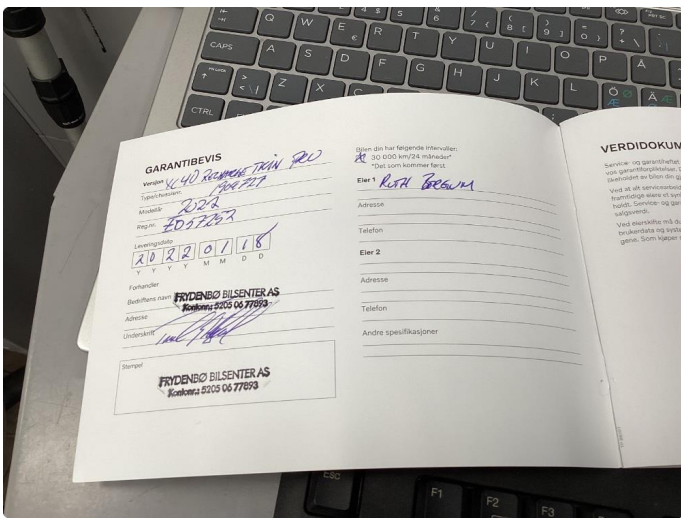 GARANTIBEVIS
Versjon XC40 RECHARGE TWIN PRO
Type/chassisnr. 1909727
Modellår 2022
Reg.nr. ED57252
Leveringsdato
2 0 2 2 0 1 1 8
Y Y Y Y M M D D
Forhandler
Bedriftens navn FRYDENBØ BILSENTER AS
Kontonr.: 5205 06 77893
Adresse
Underskrift
Stempel
FRYDENBØ BILSENTER AS
Kontonr.: 5205 06 77893
Bilen din har følgende intervaller:
30 000 km/24 måneder*
*Det som kommer først
Eier 1 RUTH BERGUM
Adresse
Telefon
Eier 2
Adresse
Telefon
Andre spesifikasjoner
VERDIDOKUM
Service- og garantiheftet
vos garantiforpliktelser.
skeholdet av bilen din g
Ved at alt servicearbeid
framtidige eiere et syn
holdt. Service- og gar
salgsverdi.
Ved eierskifte må du
brukerdata og syste
gene. Som kjøper
Q W E R T Y U I O P Å
CAPS A S D F G H J K L Ö Ø Æ Ä
Z X
CTRL
ESC F1 F2 F3